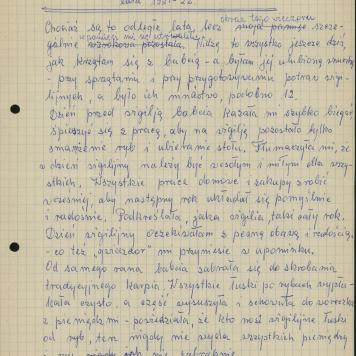 lata 1921-22.
obraz tego wieczoru
Chociaż są to odległe lata, lecz moja pamięć szcze-
gólnie. Widzę to wszystko jeszcze dziś,
jak krzątam się z babcią - a byłam jej ulubioną wnuczką
- przy sprzątaniu i przy przygotowywaniu potraw wigi-
lijnych, a było ich mnóstwo, podobno 12.
Dzień przed wigilią babcia kazała mi szybko biegać
śpieszyć się z pracą, aby na wigilię pozostało tylko
smażenie ryb i ubieranie stołu. Tłumaczyła mi, że
w dzień wigilijny należy być wesołym i miłym dla wszy-
stkich. Wszystkie prace domowe i zakupy zrobić
wcześniej, aby następny rok układał się pomyślnie
i radośnie. Podkreślała, jaka wigilia taki cały rok.
Dzień wigilijny oczekiwałam z pewną obawą i radością,
- co też "gwiazdor" mi przyniesie w upominku.
Od samego rana babcia zabrała się do skrobania
tradycyjnego karpia. Wszystkie łuski po rybach wypłu-
kała czysto, a część wysuszyła i schowała do woreczka
z pieniędzmi - powiedziała, że kto nosi wigilijne łuski
od ryb, ten nigdy nie wyda wszystkich pieniędzy